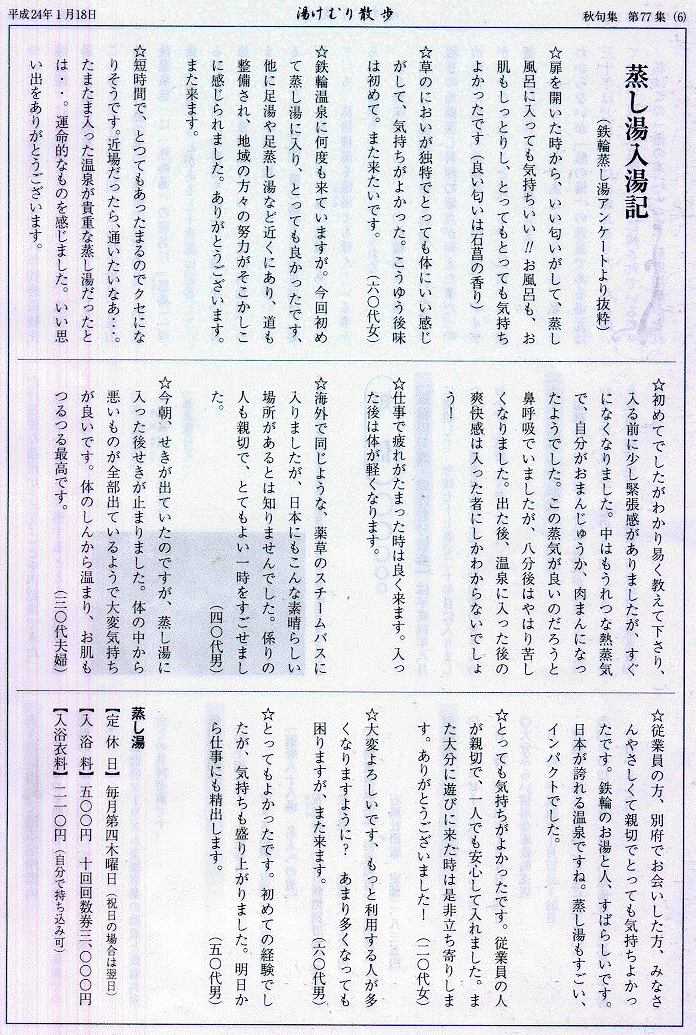 平成24年1月18日
湯けむり散歩
秋句集 第77集 (6)
蒸し湯入湯記
(鉄輪蒸し湯アンケートより抜粋)
☆扉を開いた時から、いい匂いがして、蒸し
風呂に入っても気持ちいい!!お風呂も、お
肌もしっとりし、とってもとっても気持ち
よかったです(良い匂いは石菖の香り)
☆草のにおいが独特でとっても体にいい感じ
がして、気持ちがよかった。こうゆう後味
は初めて。また来たいです。 (六〇代女)
☆鉄輪温泉に何度も来ていますが。今回初め
て蒸し湯に入り、とっても良かったです、
他に足湯や足蒸し湯など近くにあり、道も
整備され、地域の方々の努力がそこかしこ
に感じられました。ありがとうございます。
また来ます。
☆短時間で、とつてもあったまるのでクセにな
りそうです。近場だったら、通いたいなあ・・。
たまたま入った温泉が貴重な蒸し湯だったと
は・・。運命的なものを感じました。いい思
い出をありがとうございます。
☆初めてでしたがわかり易く教えて下さり、
入る前に少し緊張感がありましたが、すぐ
になくなりました。中はもうれつな熱蒸気
で、自分がおまんじゅうか、肉まんになっ
たようでした。この蒸気が良いのだろうと
鼻呼吸でいましたが、八分後はやはり苦し
くなりました。出た後、温泉に入った後の
爽快感は入った者にしかわからないでしょ
う!
☆仕事で疲れがたまった時は良く来ます。入っ
た後は体が軽くなります。
☆海外で同じような、薬草のスチームバスに
入りましたが、日本にもこんな素晴らしい
場所があるとは知りませんでした。係りの
人も親切で、とてもよい一時をすごせまし
た。 (四〇代男)
☆今朝、せきが出ていたのですが、蒸し湯に
入った後せきが止まりました。体の中から
悪いものが全部出ているようで大変気持ち
が良いです。体のしんから温まり、お肌も
つるつる最高です。 (三〇代夫婦)
☆従業員の方、別府でお会いした方、みなさ
んやさしくて親切でとっても気持ちよかっ
たです。鉄輪のお湯と人、すばらしいです。
日本が誇れる温泉ですね。蒸し湯もすごい、
インパクトでした。
☆とっても気持ちがよかったです。従業員の人
が親切で、一人でも安心して入れました。ま
た大分に遊びに来た時は是非立ち寄りしま
す。ありがとうございました! (二〇代女)
☆大変よろしいです、もっと利用する人が多
くなりますように? あまり多くなっても
困りますが、また来ます。 (六〇代男)
☆とってもよかったです。初めての経験でし
たが、気持ちも盛り上がりました。明日か
ら仕事にも精出します。 (五〇代男)
蒸し湯
【定休日】毎月第四木曜日(祝日の場合は翌日)
【入浴料】五〇〇円 十回回数券三、〇〇〇円
【入浴衣料】二一〇円(自分で持ち込み可)